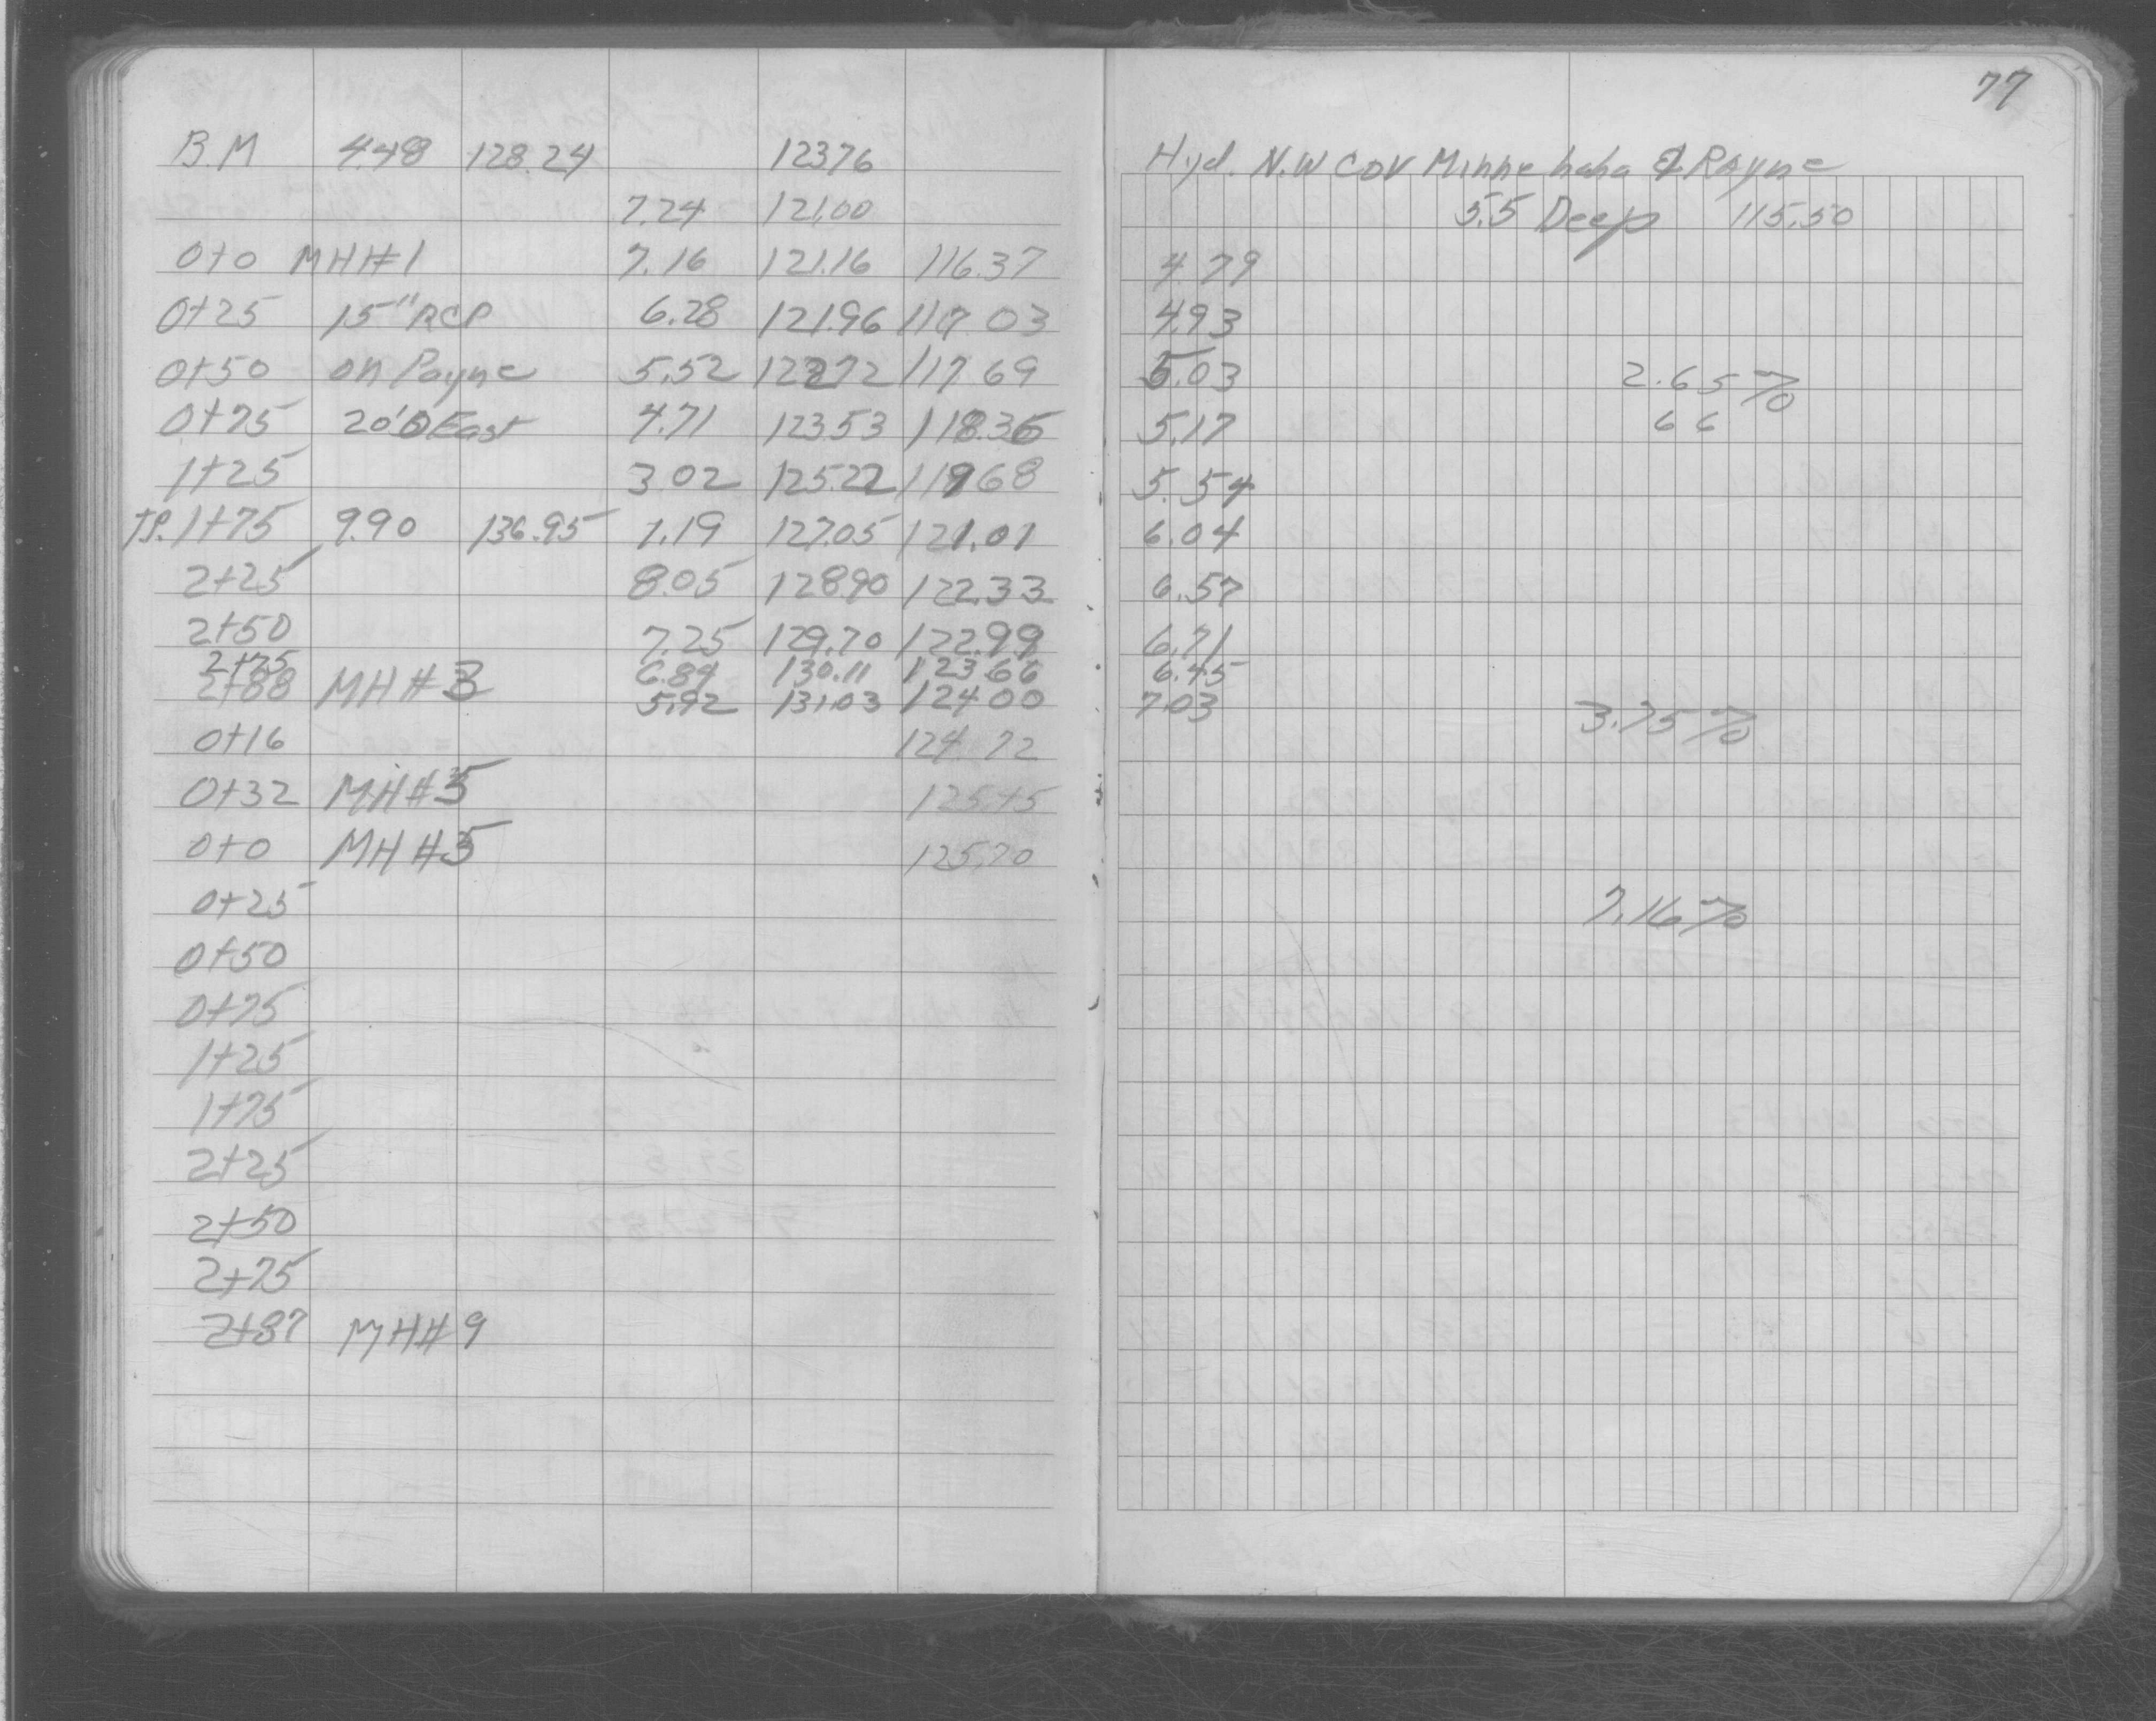 77
B.M 4.48 128.24 123.76 Hyd. N.W Cor Minnehaha & Payne
7.24 121.00 5.5 Deep 115.50
0+0 MH#1 7.16 121.16 116.37 4.79
0+25 15" RCP 6.28 121.96 117.03 4.93
0+50 on Payne 5.52 122.72 117.69 5.03 2.65%
0+75 20' East 4.71 123.53 118.36 5.17 66
1+25 3.02 125.22 119.68 5.54
T.P. 1+75 9.90 136.95 1.19 127.05 121.01 6.04
2+25 8.05 128.90 122.33 6.57
2+50 7.25 129.70 122.99 6.71
2+75 6.84 130.11 123.66 6.45
2+88 MH#3 5.92 131.03 124.00 7.03 3.75%
0+16 124.72
0+32 MH#5 125.45
0+0 MH#5 125.70
0+25 7.16%
0+50
0+75
1+25
1+75
2+25
2+50
2+75
2+87 MH#9